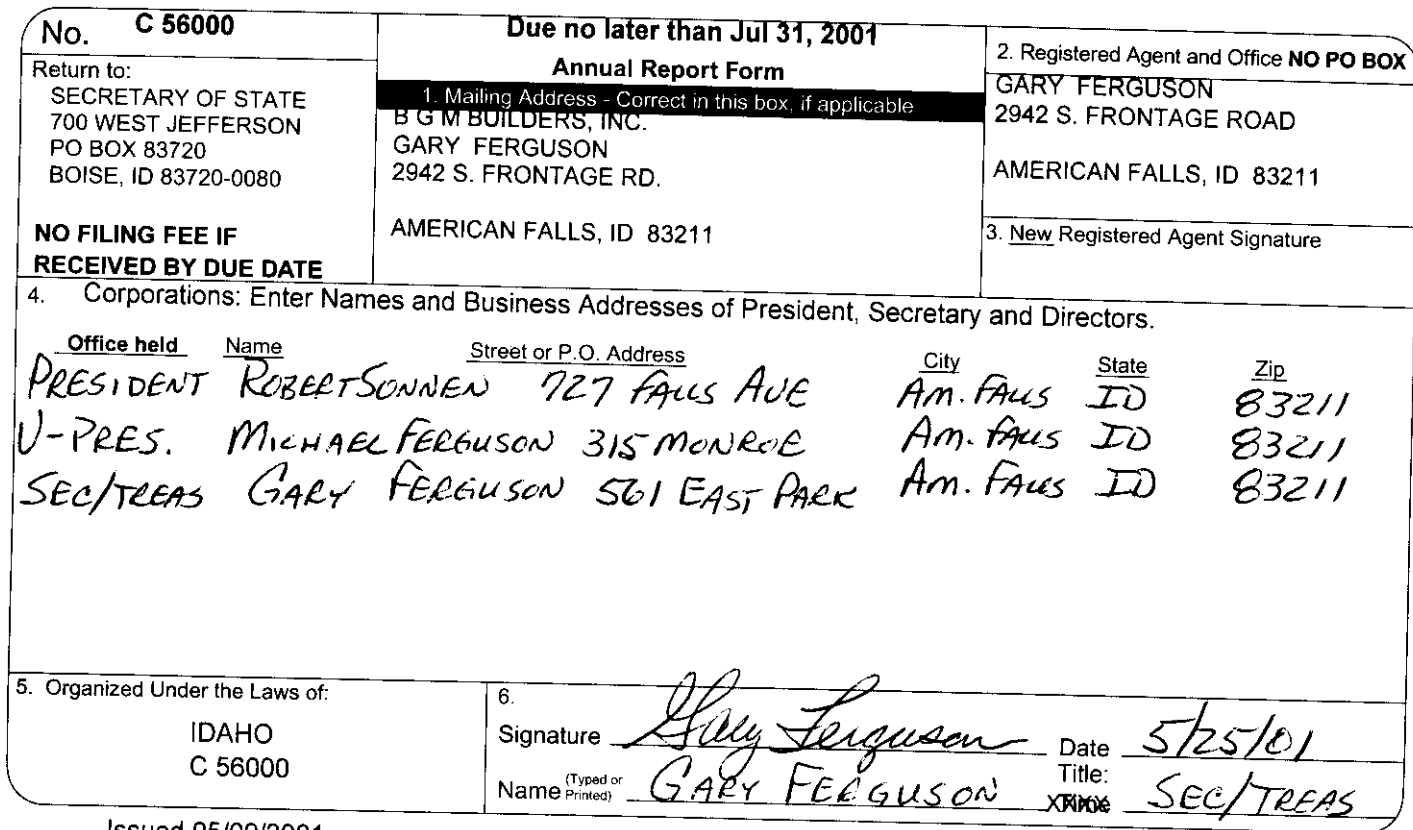 No. C 56000
Return to:
SECRETARY OF STATE
700 WEST JEFFERSON
PO BOX 83720
BOISE, ID 83720-0080
NO FILING FEE IF
RECEIVED BY DUE DATE
Due no later than Jul 31, 2001
Annual Report Form
1. Mailing Address - Correct in this box, if applicable
B G M BUILDERS, INC.
GARY FERGUSON
2942 S. FRONTAGE RD.
AMERICAN FALLS, ID 83211
2. Registered Agent and Office NO PO BOX
GARY FERGUSON
2942 S. FRONTAGE ROAD
AMERICAN FALLS, ID 83211
3. New Registered Agent Signature
4. Corporations: Enter Names and Business Addresses of President, Secretary and Directors.
Office held Name Street or P.O. Address City State Zip
PRESIDENT ROBERT SONNEN 727 FALLS AVE AM. FALLS ID 83211
V-PRES. MICHAEL FERGUSON 315 MONROE AM. FALLS ID 83211
SEC/TREAS GARY FERGUSON 561 EAST PARK AM. FALLS ID 83211
5. Organized Under the Laws of:
IDAHO
C 56000
6.
Signature Gary Ferguson Date 5/25/01
Name (Typed or Printed) GARY FERGUSON Title: SEC/TREAS
Issued 05/09/2001